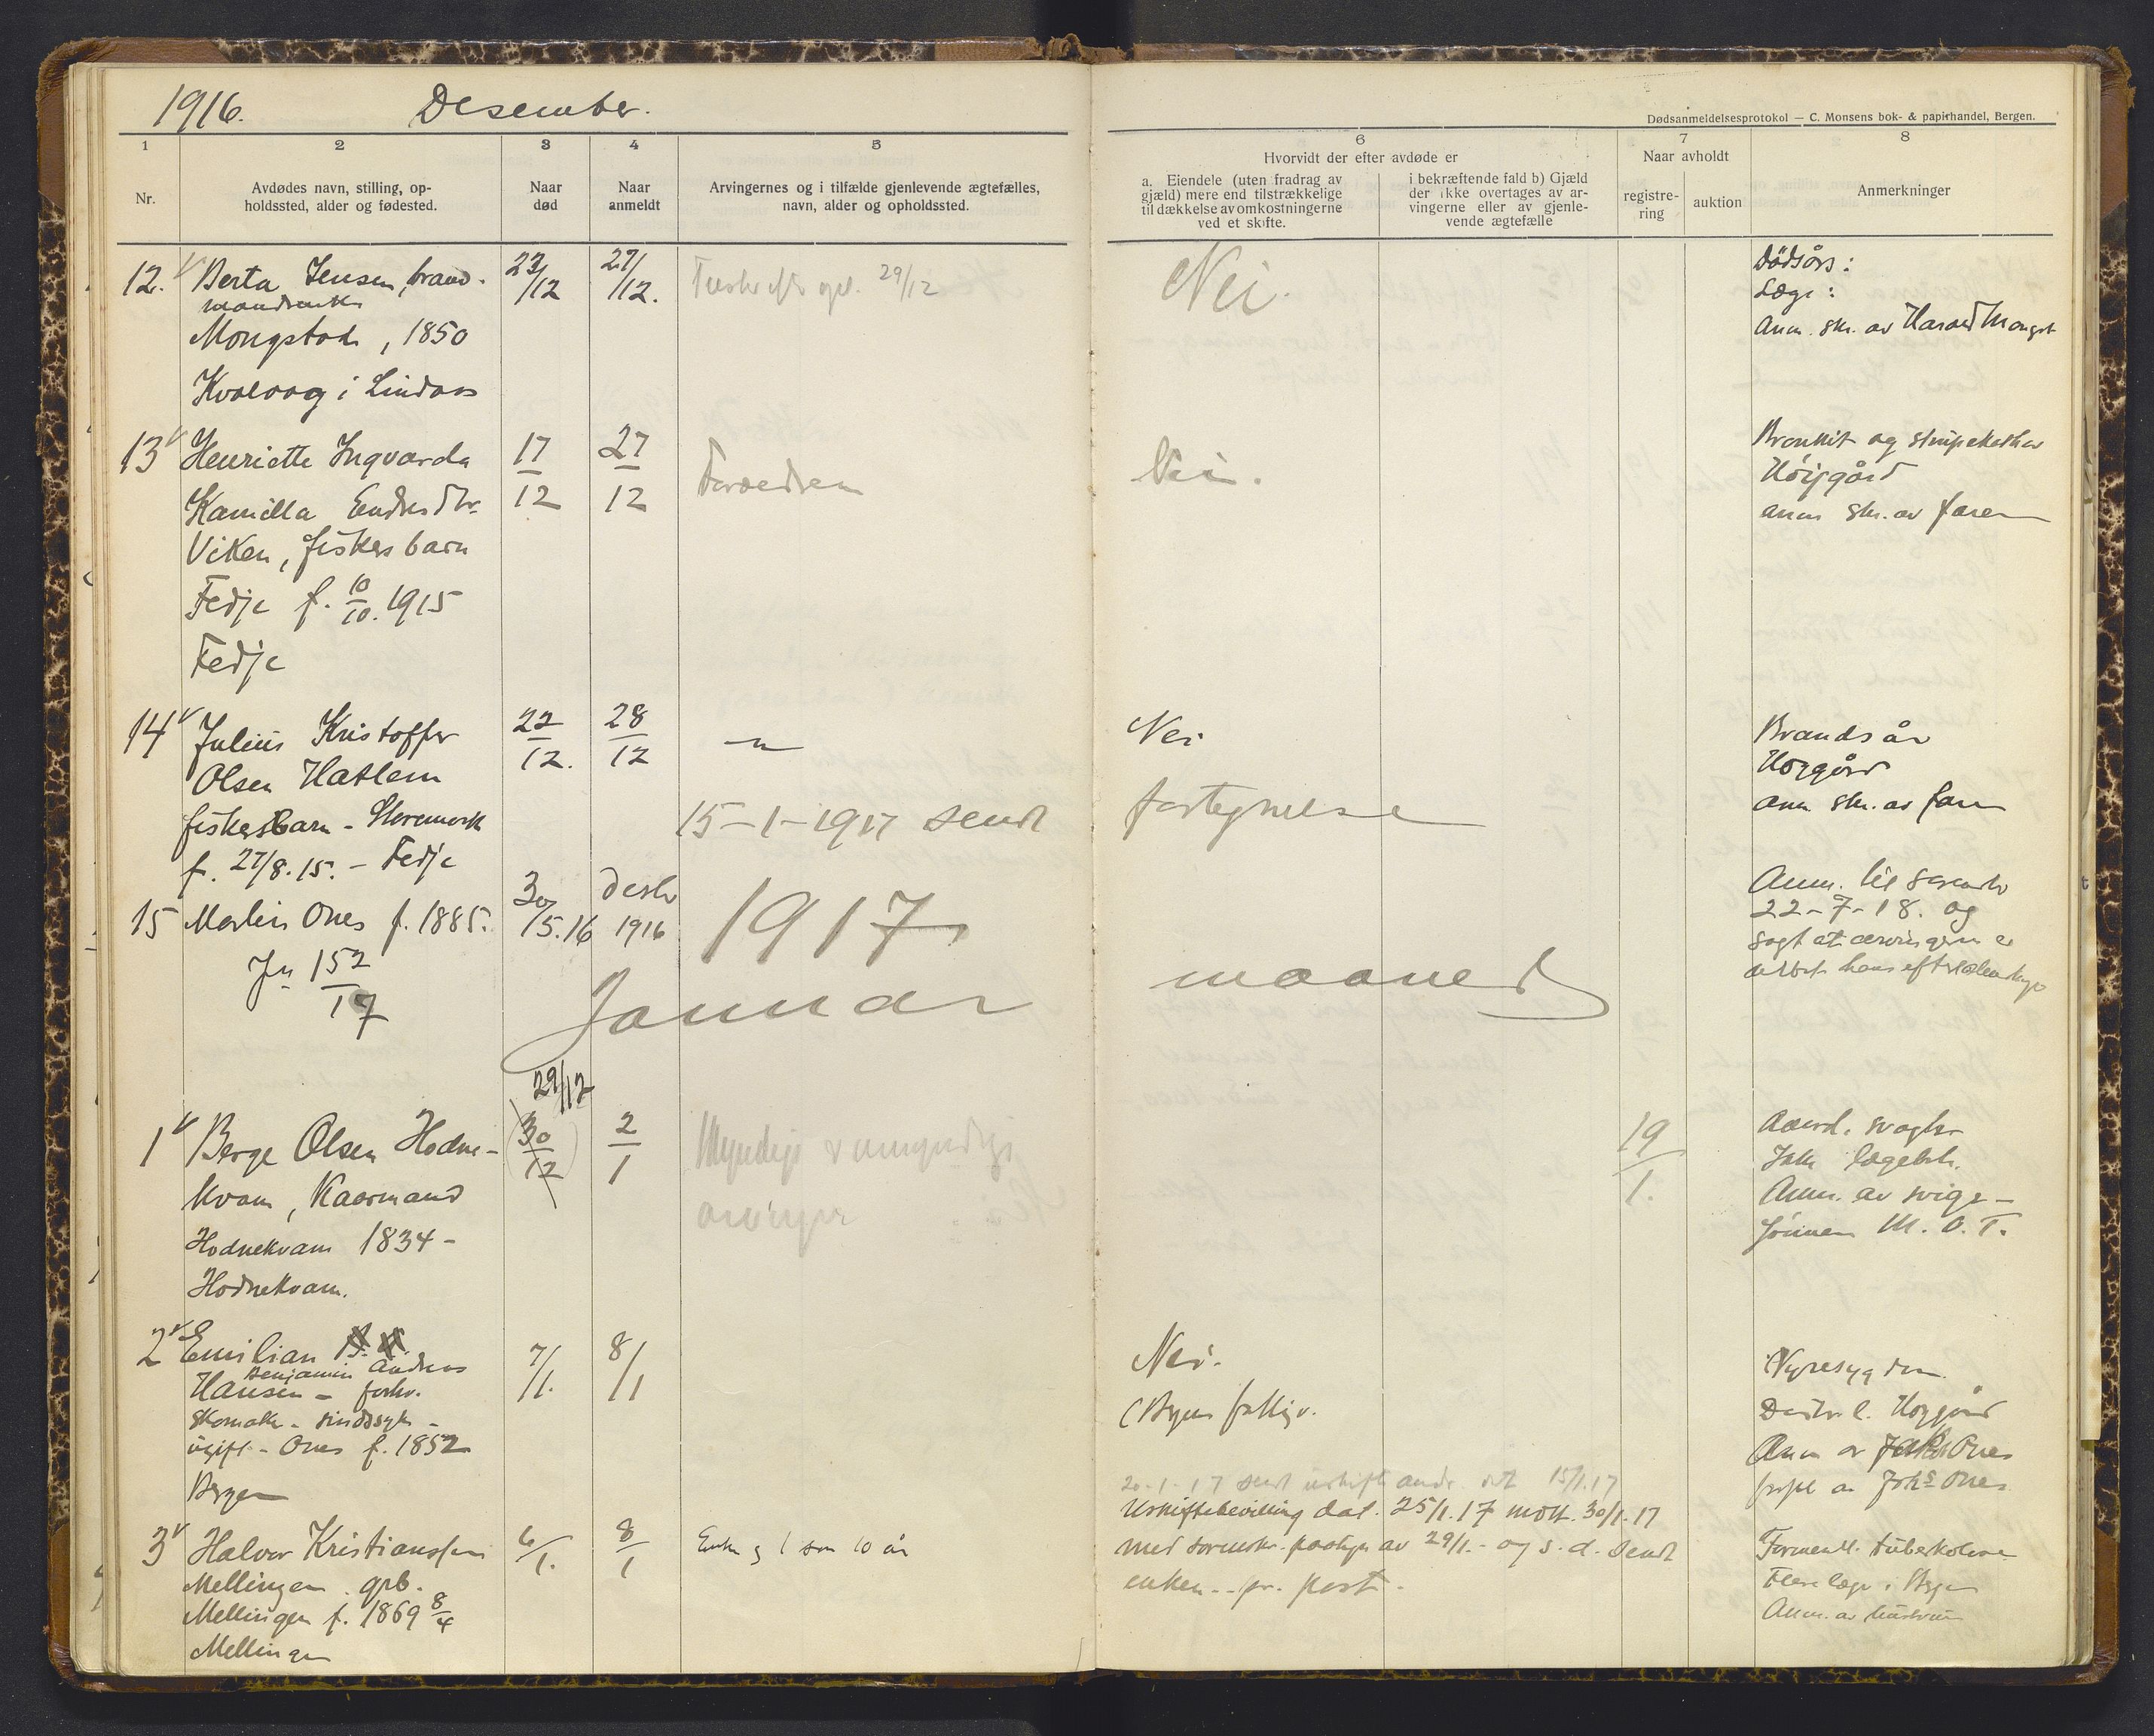 1916. Desember.
Dødsanmeldelsesprotokol — C. Monsens bok- & papirhandel, Bergen.
1 2 3 4 5 6 7 8
Nr.
Avdødes navn, stilling, op-
holdssted, alder og fødested.
Naar
død
Naar
anmeldt
Arvingernes og i tilfælde gjenlevende ægtefælles,
navn, alder og opholdssted.
Hvorvidt der efter avdøde er
a. Eiendele (uten fradrag av
gjæld) mere end tilstrækkelige
til dækkelse av omkostningerne
ved et skifte.
i bekræftende fald b) Gjæld
der ikke overtages av ar-
vingerne eller av gjenle-
vende ægtefælle
Naar avholdt
registre-
ring
auktion
Anmerkninger
12. Berta Jensen,
Mongstad, 1850
Kvalvaag i Lindaas
23/12
27/12.
29/12
Nei.
Dødsårs:
Læge:
Anm. skr. av Harald Mongst
13 Henriette Ingvarda
Kamilla Endresdtr.
Viken, fiskers barn
Fedje f. 10/10. 1915
Fedje
17/12
27/12
Forældrene
Nei.
Bronkit og
Høygård
anm skr. av faren
14 Julius Kristoffer
Olsen Hatlem
fiskersbarn - Storemark
f. 27/8. 15. - Fedje
22/12.
28/12
— " —
Nei
Brandsår
Høygård
anm skr. av faren
15-1-1917 sendt fortegnelse
15 Martin Ones f. 1885.
Jn 152/17
30/5.16
1916
Anm. til
22-7-18. og
sagt at arvingerne er
1917
Januar maaned
1 Berge Olsen Hodne-
kvam, Kaarmand
Hodnekvam 1834 -
Hodnekvam.
29/12
30/12
2/1
Myndige & umyndige
arvinger
19/1.
Ikke lægebeh.
Anm. av svige-
sønnen M. O. T.
2 Emilian
Benjamin Andreas
Hansen - forhv.
Skomak. - sindssyk -
ugift - Ones f. 1852
Bergen
7/1.
8/1
Nei.
(Byens fattigv.
Nyresygdom
Distr. l. Høygård
Anm av Ones
3 Halvor Kristianssen
Mellingen grb.
Mellingen f. 1869 8/4
Mellingen
6/1.
8/1
Enke og 1 søn 10 år
20-1-17 sendt
15/1.17
Uskiftebevilling dat. 25/1.17 mott. 30/1.17
med sorenskr. paategn av 29/1.- og s. d. sendt
enken - pr. post.
Formentl. tuberkolose
Flere læger i Bergen
Anm. av hustruen